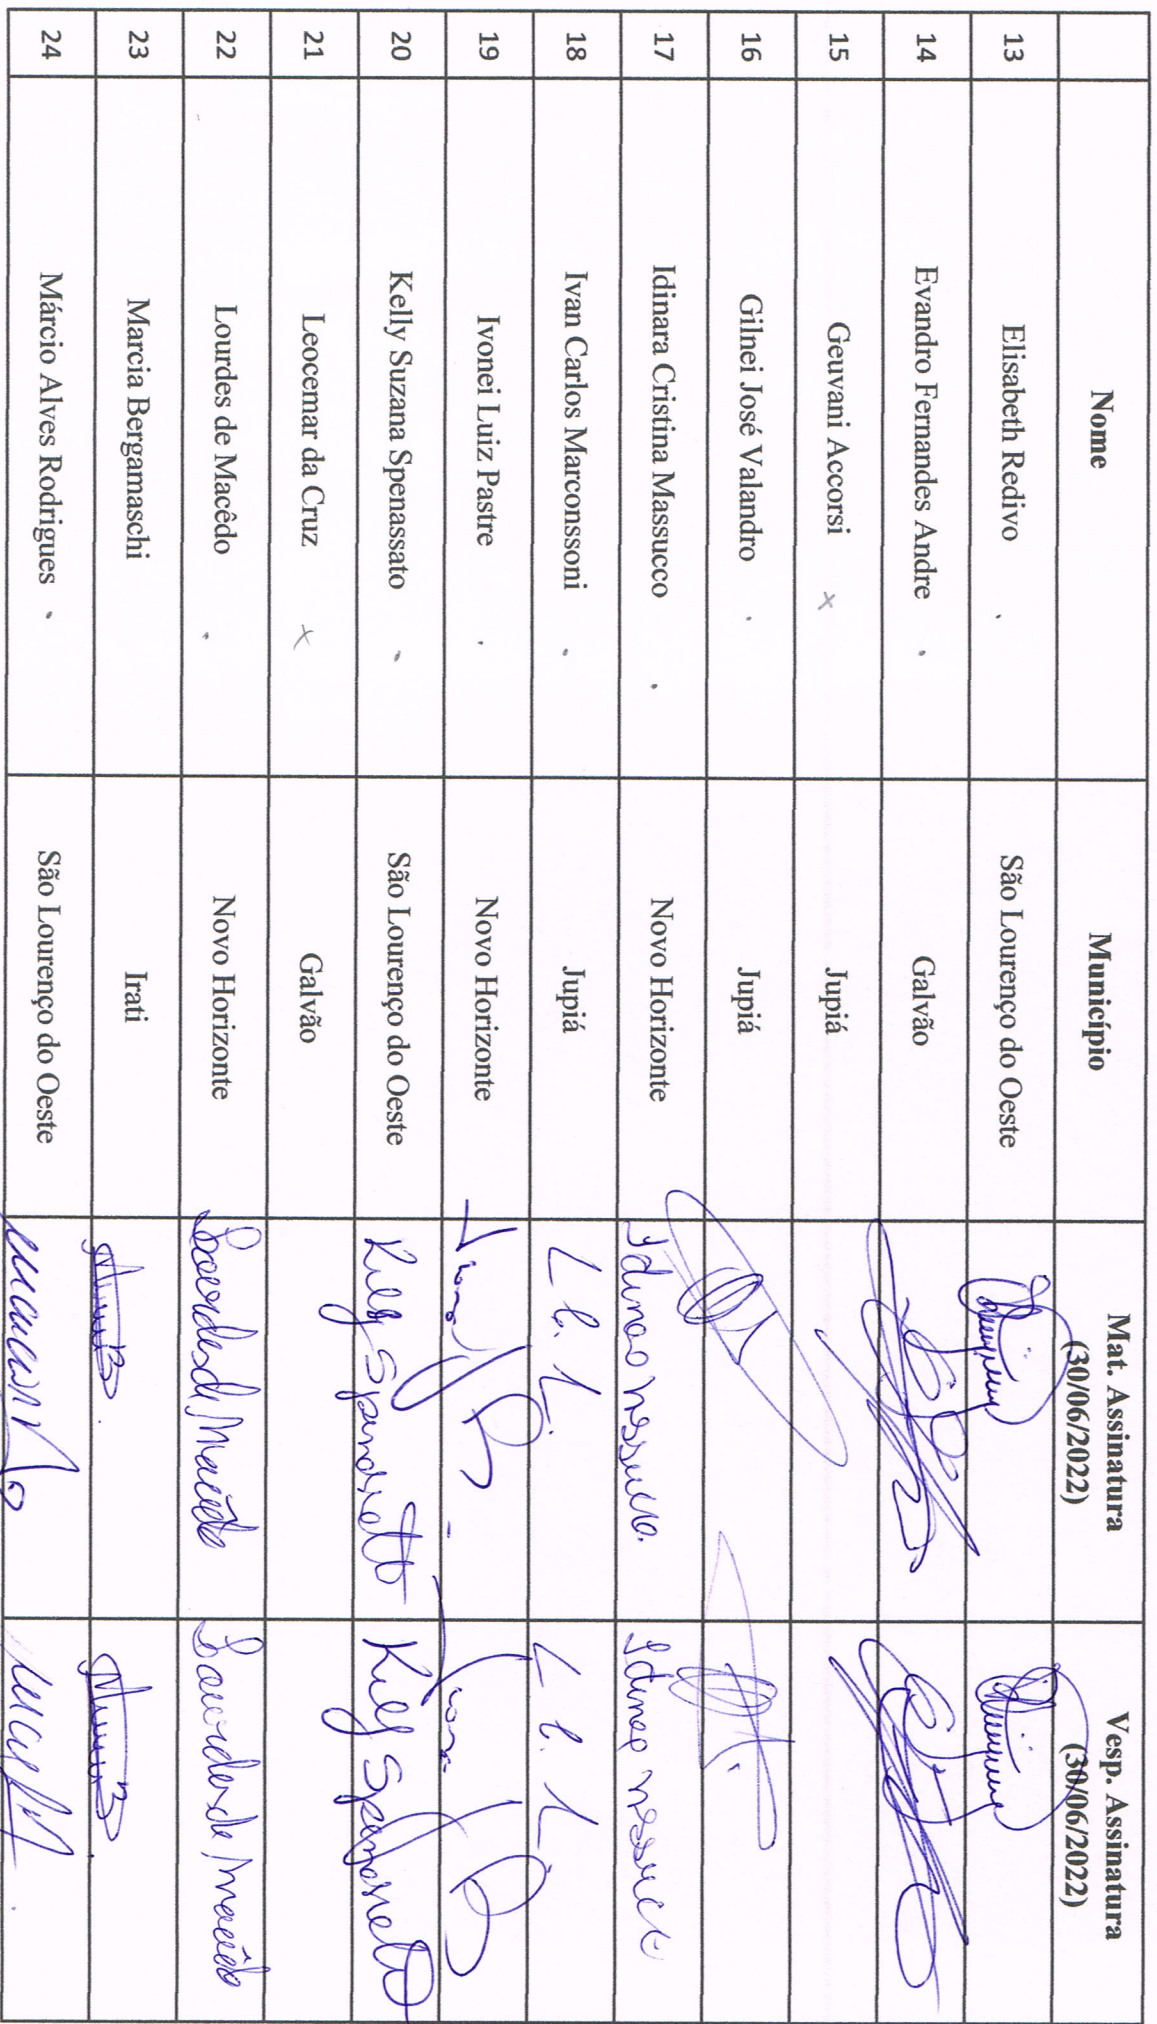 Nome Município Mat. Assinatura Vesp. Assinatura
(30/06/2022) (30/06/2022)
13 Elisabeth Redivo São Lourenço do Oeste
14 Evandro Fernandes Andre Galvão
15 Geuvani Accorsi x Jupiá
16 Gilnei José Valandro Jupiá
17 Idinara Cristina Massucco Novo Horizonte
18 Ivan Carlos Marconssoni Jupiá
19 Ivonei Luiz Pastre Novo Horizonte
20 Kelly Suzana Spenassato São Lourenço do Oeste Kelly Kelly
21 Leocemar da Cruz x Galvão
22 Lourdes de Macêdo Novo Horizonte Lourdes de Macêdo Lourdes de Macêdo
23 Marcia Bergamaschi Irati
24 Márcio Alves Rodrigues São Lourenço do Oeste